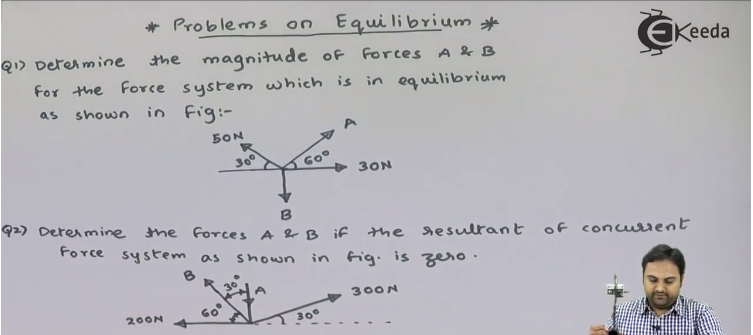 * Problems on Equilibrium *
EKeeda
Q1) Determine the magnitude of Forces A & B
For the Force system which is in equilibrium
as shown in Fig:-
A
50N
30°
60°
30N
B
Q2) Determine the Forces A & B if the resultant of concurrent
Force system as shown in fig. is zero.
B
30°
A
300N
60°
30°
200N